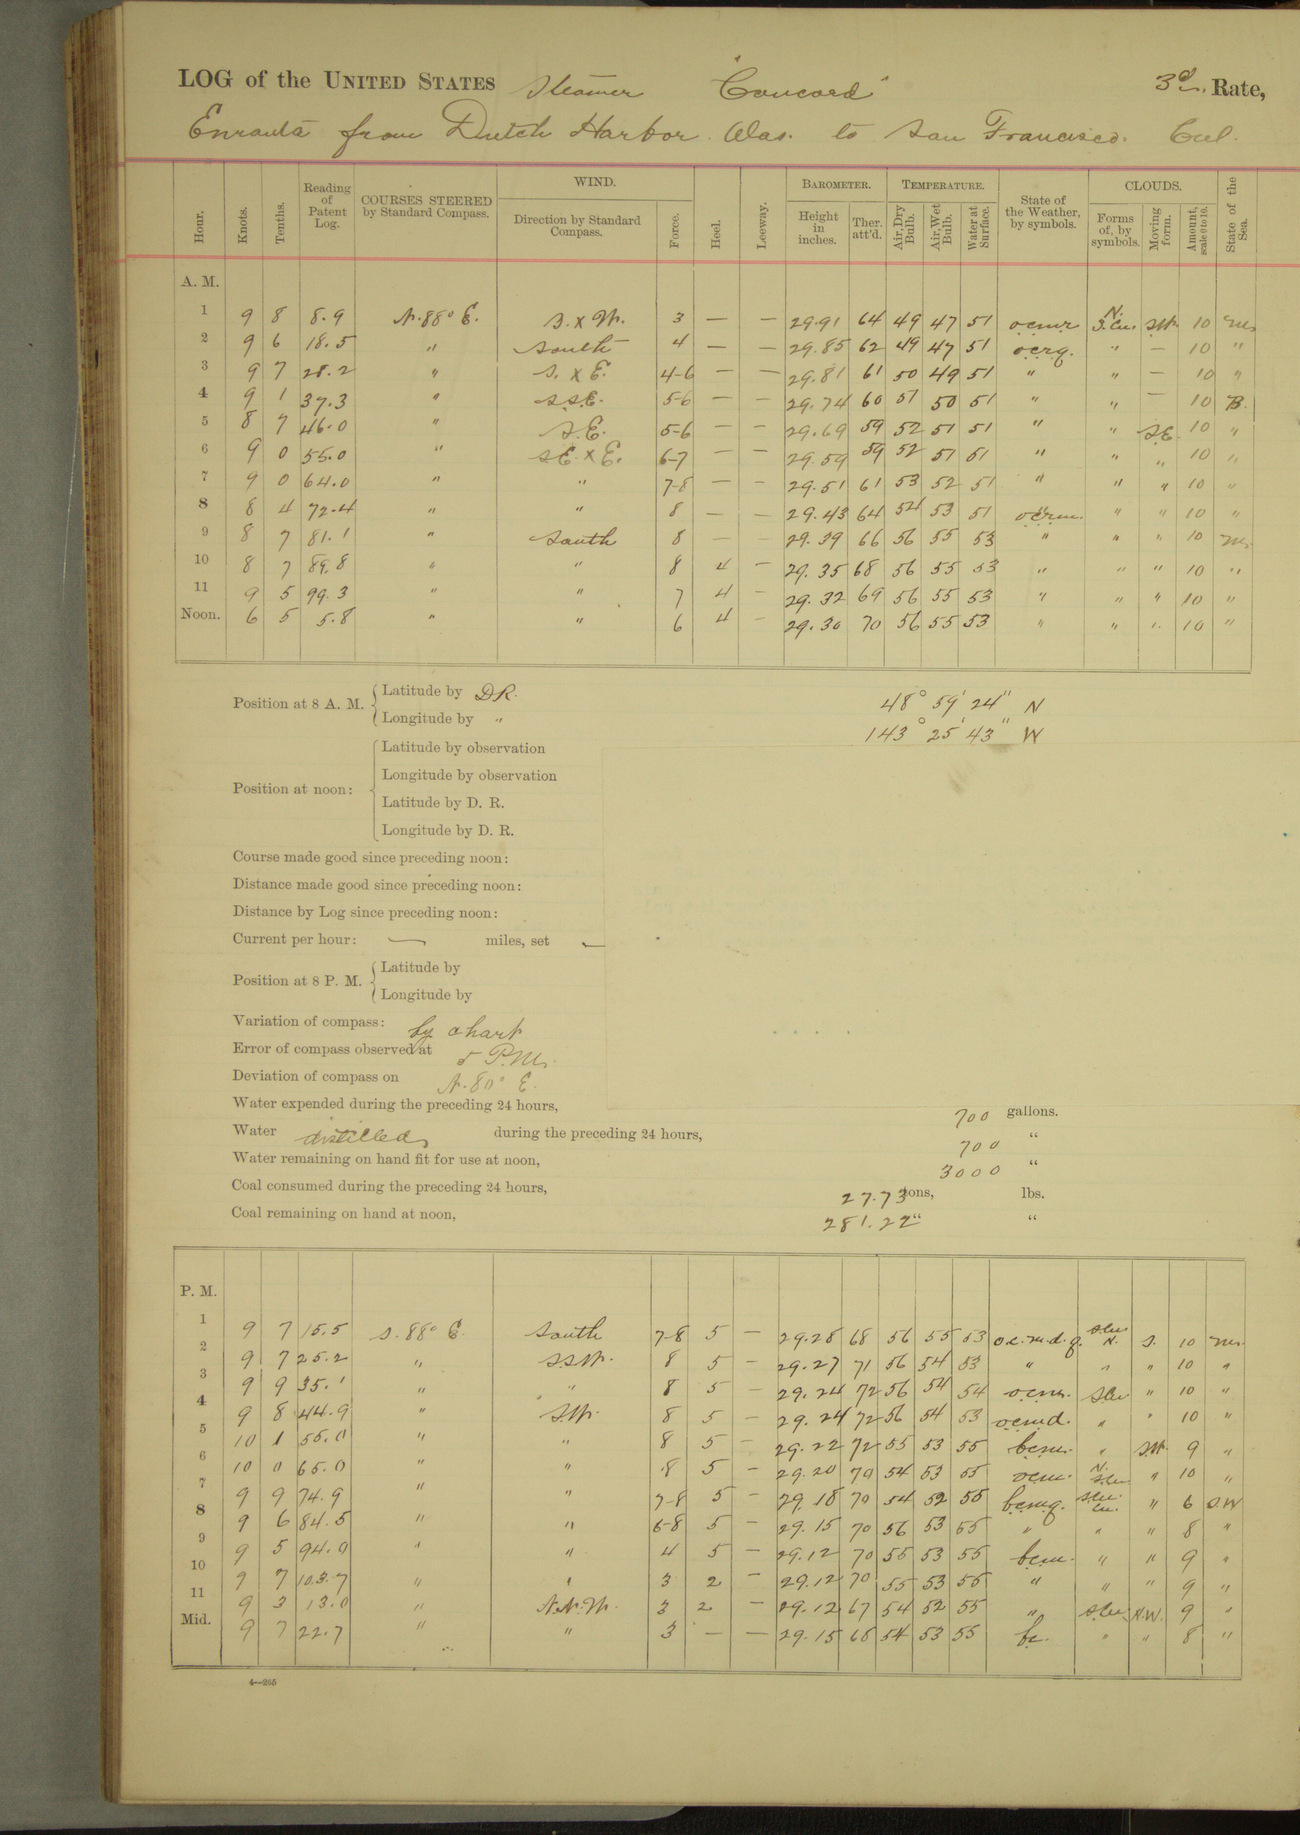 LOG of the UNITED STATES Steamer "Concord" 3d Rate,
Enroute from Dutch Harbor to San Francisco. Cal.
Hour. Knots. Tenths. Reading of Patent Log. COURSES STEERED by Standard Compass. WIND. Direction by Standard Compass. Force. Heel. Leeway. BAROMETER. Height in inches. Ther. att'd. TEMPERATURE. Air, Dry Bulb. Air, Wet Bulb. Water at Surface. State of the Weather, by symbols. CLOUDS. Forms of, by symbols. Moving form. Amount, scale 0 to 10. State of the Sea.
A. M.
1 9 8 8.9 N. 88° E. S. x W. 3 — — 29.91 64 49 47 51 ocmr N. S.Cu. SW. 10 m
2 9 6 18.5 " South 4 — — 29.85 62 49 47 51 ocrq. " — 10 "
3 9 7 28.2 " S. x E. 4-6 — — 29.81 61 50 49 51 " " — 10 "
4 9 1 37.3 " S.S.E. 5-6 — — 29.74 60 51 50 51 " " — 10 B.
5 8 7 46.0 " S.E. 5-6 — — 29.69 59 52 51 51 " " S.E. 10 "
6 9 0 55.0 " SE. x E. 6-7 — — 29.59 59 52 51 51 " " " 10 "
7 9 0 64.0 " " 7-8 — — 29.51 61 53 52 51 " " " 10 "
8 8 4 72.4 " " 8 — — 29.43 64 54 53 51 ocrm. " " 10 "
9 8 7 81.1 " South 8 — — 29.39 66 56 55 53 " " " 10 m.
10 8 7 89.8 " " 8 4 — 29.35 68 56 55 53 " " " 10 "
11 9 5 99.3 " " 7 4 — 29.32 69 56 55 53 " " " 10 "
Noon. 6 5 5.8 " " 6 4 — 29.30 70 56 55 53 " " " 10 "
Position at 8 A. M. Latitude by DR. 48° 59' 24" N
Longitude by " 143° 25' 43" W
Position at noon: Latitude by observation
Longitude by observation
Latitude by D. R.
Longitude by D. R.
Course made good since preceding noon:
Distance made good since preceding noon:
Distance by Log since preceding noon:
Current per hour: — miles, set —
Position at 8 P. M. Latitude by
Longitude by
Variation of compass: by chart
Error of compass observed at 5 P.M.
Deviation of compass on N. 80° E.
Water expended during the preceding 24 hours, 700 gallons.
Water distilled during the preceding 24 hours, 700 "
Water remaining on hand fit for use at noon, 3000 "
Coal consumed during the preceding 24 hours, 27.73 tons, lbs.
Coal remaining on hand at noon, 281.22 " "
P. M.
1 9 7 15.5 S. 88° E. South 7-8 5 — 29.28 68 56 55 53 o.c.m.d.q. S.Cu. N. S. 10 m.
2 9 7 25.2 " S.S.W. 8 5 — 29.27 71 56 54 53 " " " 10 "
3 9 9 35.1 " " 8 5 — 29.24 72 56 54 54 ocm. S.Cu " 10 "
4 9 8 44.9 " S.W. 8 5 — 29.24 72 56 54 53 ocmd. " " 10 "
5 10 1 55.0 " " 8 5 — 29.22 72 55 53 55 bcm. " S.W. 9 "
6 10 0 65.0 " " 8 5 — 29.20 70 54 53 55 ocm. N. S.Cu. " 10 "
7 9 9 74.9 " " 7-8 5 — 29.18 70 54 52 55 bcmq. S.Cu. Cu. " 6 S.W
8 9 6 84.5 " " 6-8 5 — 29.15 70 56 53 55 " " " 8 "
9 9 5 94.0 " " 4 5 — 29.12 70 55 53 55 bcm. " " 9 "
10 9 7 103.7 " " 3 2 — 29.12 70 55 53 55 " " " 9 "
11 9 3 13.0 " N.N.W. 3 2 — 29.12 67 54 52 55 " S.Cu. N.W. 9 "
Mid. 9 7 22.7 " " 3 — — 29.15 68 54 53 55 bc. " " 8 "
4—265